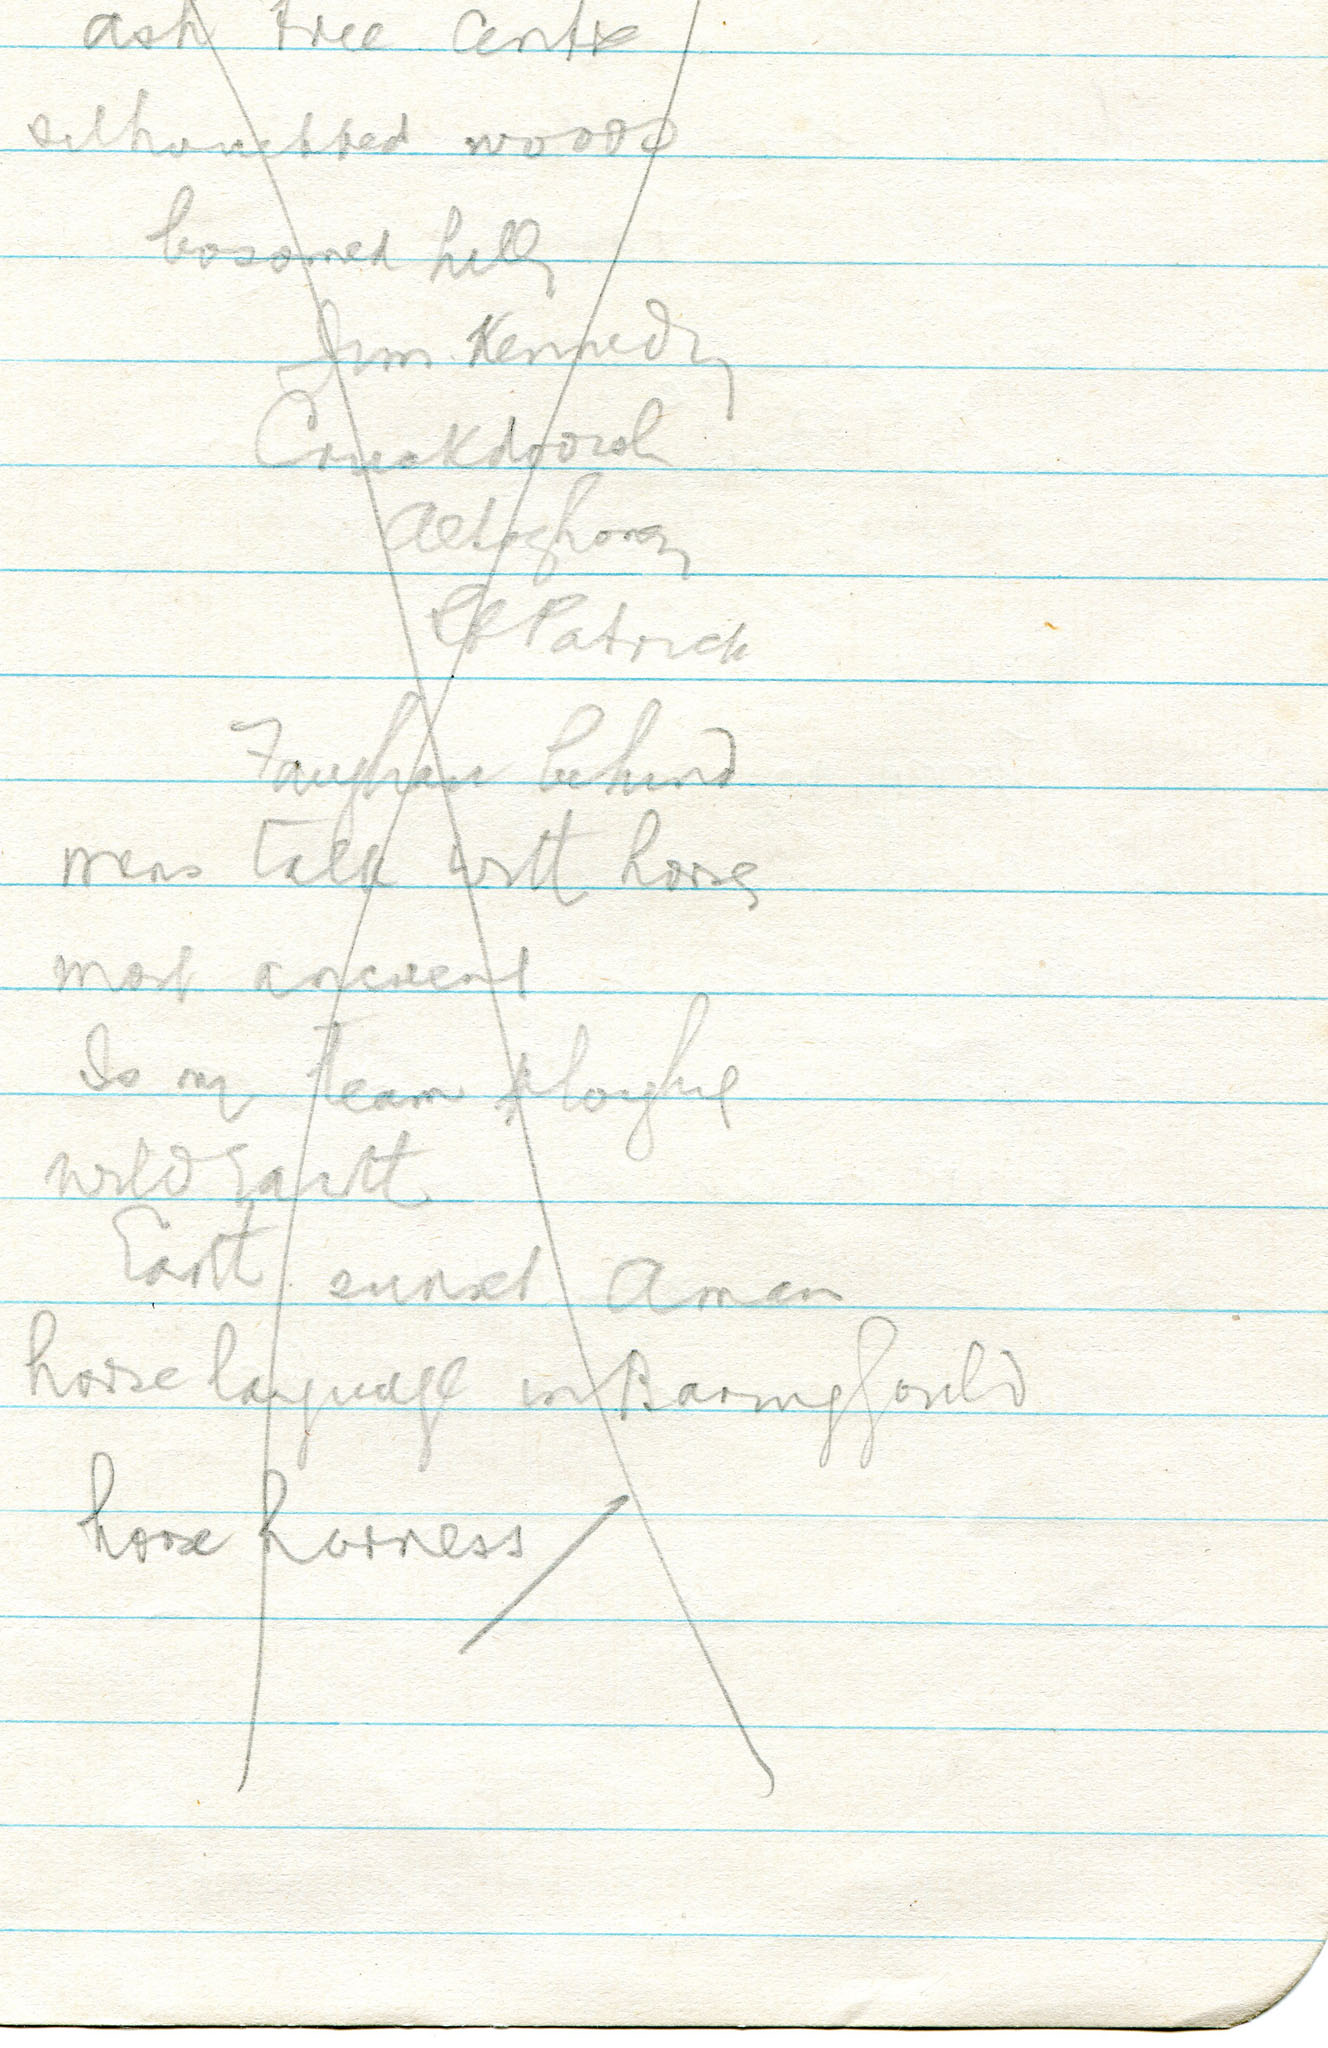 ash tree centre
silhouetted woods
bosomed hills
Jim Kennedy
Cruckdooish
Altaghoney
St Patrick
Faughan behind
mens talk with horses
most ancient
Is my team ploughing
wild Earth
Earth sunset a man
horse language in Baring Gould
horse harness